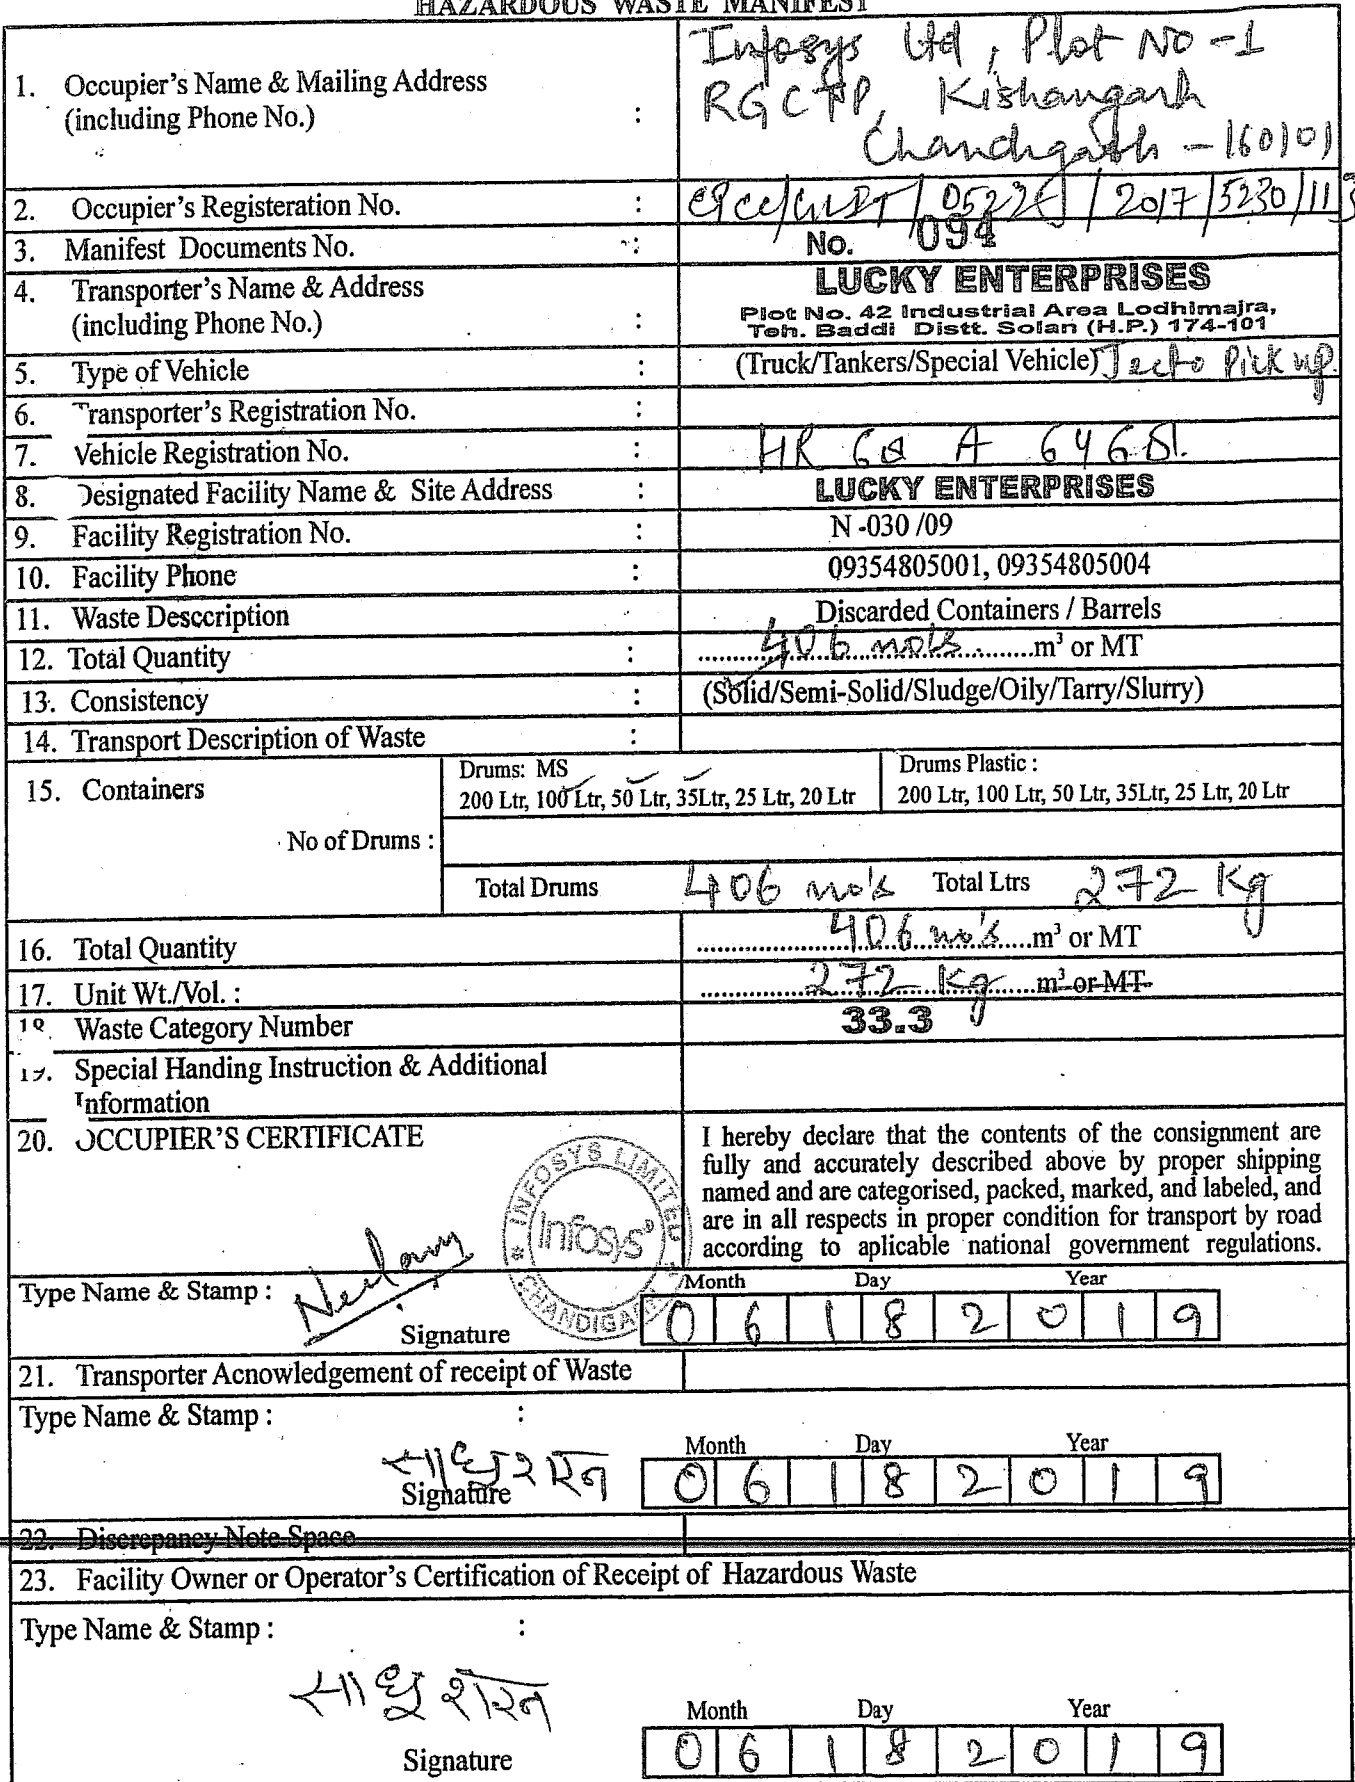 HAZARDOUS WASTE MANIFEST
1. Occupier's Name & Mailing Address
(including Phone No.) :
Infosys Ltd, Plot No -1
RGCTP, Kishangarh
Chandigarh - 160101
2. Occupier's Registeration No. : / 2017/5230/113
3. Manifest Documents No. : No. 094
4. Transporter's Name & Address
(including Phone No.) :
LUCKY ENTERPRISES
Plot No. 42 Industrial Area Lodhimajra,
Teh. Baddi Distt. Solan (H.P.) 174-101
5. Type of Vehicle : (Truck/Tankers/Special Vehicle) Pick up.
6. Transporter's Registration No. :
7. Vehicle Registration No. : HR A
8. Designated Facility Name & Site Address : LUCKY ENTERPRISES
9. Facility Registration No. : N -030 /09
10. Facility Phone : 09354805001, 09354805004
11. Waste Desccription Discarded Containers / Barrels
12. Total Quantity : 406 no's m³ or MT
13. Consistency : (Solid/Semi-Solid/Sludge/Oily/Tarry/Slurry)
14. Transport Description of Waste :
15. Containers
Drums: MS
200 Ltr, 100 Ltr, 50 Ltr, 35Ltr, 25 Ltr, 20 Ltr
Drums Plastic :
200 Ltr, 100 Ltr, 50 Ltr, 35Ltr, 25 Ltr, 20 Ltr
No of Drums :
Total Drums 406 no's Total Ltrs 272 Kg
16. Total Quantity 406 no's m³ or MT
17. Unit Wt./Vol. : 272 Kg m³ or MT
Waste Category Number 33.3
Special Handing Instruction & Additional
Information
20. OCCUPIER'S CERTIFICATE
I hereby declare that the contents of the consignment are
fully and accurately described above by proper shipping
named and are categorised, packed, marked, and labeled, and
are in all respects in proper condition for transport by road
according to aplicable national government regulations.
INFOSYS LIMITED
Infosys
CHANDIGARH
Type Name & Stamp :
Signature
Month Day Year
0 6 1 8 2 0 1 9
21. Transporter Acnowledgement of receipt of Waste
Type Name & Stamp : :
साधु शरन
Signature
Month Day Year
0 6 1 8 2 0 1 9
22. Discrepancy Note Space
23. Facility Owner or Operator's Certification of Receipt of Hazardous Waste
Type Name & Stamp : :
साधु शरन
Signature
Month Day Year
0 6 1 8 2 0 1 9